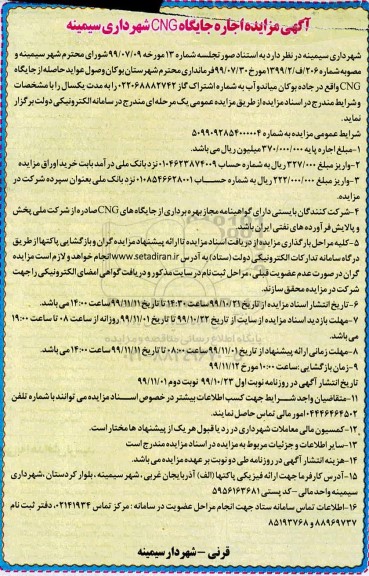 آگهی مزایده اجاره جایگاه CNG شهرداری سیمینه
شهرداری سیمینه در نظر دارد به استناد صورتجلسه شماره ۱۳ مورخه ۹۹/۰۷/۰۹ شورای محترم شهر سیمینه و
مصوبه شماره ۲۰۶/ف/۱۳۹۹/۲ مورخ ۹۹/۰۷/۳۰ فرمانداری محترم شهرستان بوکان وصول عواید حاصله از جایگاه
CNG واقع در جاده بوکان میاندوآب به شماره اشتراک گاز ۰۲۲۰۶۸۸۸۲۷۴۲ را به مدت یکسال را با مشخصات
و شرایط مندرج در اسناد مزایده از طریق مزایده عمومی یک مرحله ای مندرج در سامانه الکترونیکی دولت برگزار
نماید.
شرایط عمومی مزایده به شماره ۵۰۹۹۰۹۲۸۵۴۰۰۰۰۰۴
۱-مبلغ اجاره پایه ۳۷۰/۰۰۰/۰۰۰ میلیون ریال می باشد.
۲-واریز مبلغ ۳۲۷/۰۰۰ ریال به شماره حساب ۰۱۰۴۶۲۳۸۷۴۰۰۹ نزد بانک ملی در آمد بابت خرید اوراق مزایده
۳-واریز مبلغ ۲۲۲/۰۰۰/۰۰۰ ریال به شماره حساب ۰۱۰۸۵۴۶۶۲۸۰۰۱ نزد بانک ملی بعنوان سپرده شرکت در
مزایده.
۴-شرکت کنندگان بایستی دارای گواهینامه مجاز بهره برداری از جایگاه های CNG صادره از شرکت ملی پخش
و پالایش فرآورده های نفتی ایران باشد.
۵-کلیه مراحل بارگذاری مزایده از دریافت اسناد مزایده تا ارائه پیشنهاد مزایده گران و بازگشایی پاکتها از طریق
درگاه سامانه تدارکات الکترونیکی دولت (ستاد) به آدرس www.setadiran.ir انجام خواهد و لازم است مزایده
گران در صورت عدم عضویت قبلی، مراحل ثبت نام در سایت مذکور و دریافت گواهی امضای الکترونیکی را جهت
شرکت در مزایده محقق سازند.
۶-تاریخ انتشار اسناد مزایده از تاریخ ۹۹/۱۰/۲۱ ساعت ۱۴:۳۰ تا تاریخ ۹۹/۱۱/۱۱ ساعت ۱۴:۰۰ می باشد.
۷-مهلت بازدید اسناد مزایده از سایت از تاریخ ۹۹/۱۰/۲۲ تا تاریخ ۹۹/۱۱/۰۱ روزانه از ساعت ۰۸ تا ساعت ۱۹:۰۰
می باشد.
۸-مهلت زمانی ارائه پیشنهاد از تاریخ ۹۹/۱۱/۰۱ ساعت ۰۸:۰۰ تا تاریخ ۹۹/۱۱/۱۱ ساعت ۱۴:۰۰ می باشد.
۹-زمان بازگشایی : ساعت ۱۰:۰۰ مورخ ۹۹/۱۱/۱۲
تاریخ انتشار آگهی در روزنامه نوبت اول ۹۹/۱۰/۲۳ نوبت دوم ۹۹/۱۱/۰۱
۱۱-متقاضیان واجد شرایط جهت کسب اطلاعات بیشتر در خصوص اسناد مزایده می توانند با شماره تلفن
۰۴۴۴۶۴۶۴۵۰۲ امور مالی تماس حاصل نمایند.
۱۲-کمسیون مالی معاملات شهرداری در رد یا قبول هر یک از پیشنهاد ها مختار است.
۱۳-سایر اطلاعات و جزئیات مربوط به مزایده در اسناد مزایده مندرج است
۱۴-هزینه انتشار آگهی در روزنامه طی دو نوبت بر عهده مزایده می باشد.
۱۵-آدرس کارفرما جهت ارائه فیزیکی پاکتها (الف) آذربایجان غربی، شهر سیمینه، بلوار کردستان، شهرداری
سیمینه واحد مالی - کد پستی ۵۹۵۶۱۶۳۶۸۱
۱۶-اطلاعات تماس سامانه ستاد جهت انجام مراحل عضویت در سامانه : مرکز تماس ۰۲۱۴۱۹۳۴ ، دفتر ثبت نام
۸۸۹۶۹۷۳۷ و ۸۵۱۹۳۷۶۸
قرنی - شهردار سیمینه